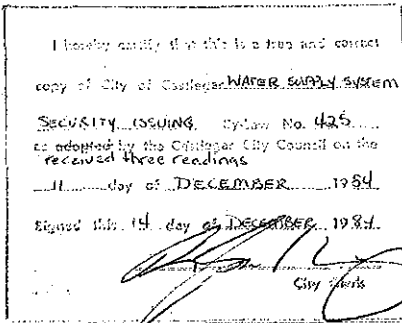 I hereby certify that this is a true and correct
copy of City of Castlegar WATER SUPPLY SYSTEM
SECURITY ISSUING By-law No. 425
as adopted by the Castlegar City Council on the
received three readings
11 day of DECEMBER 1984
Signed this 14 day of DECEMBER 1984
City Clerk